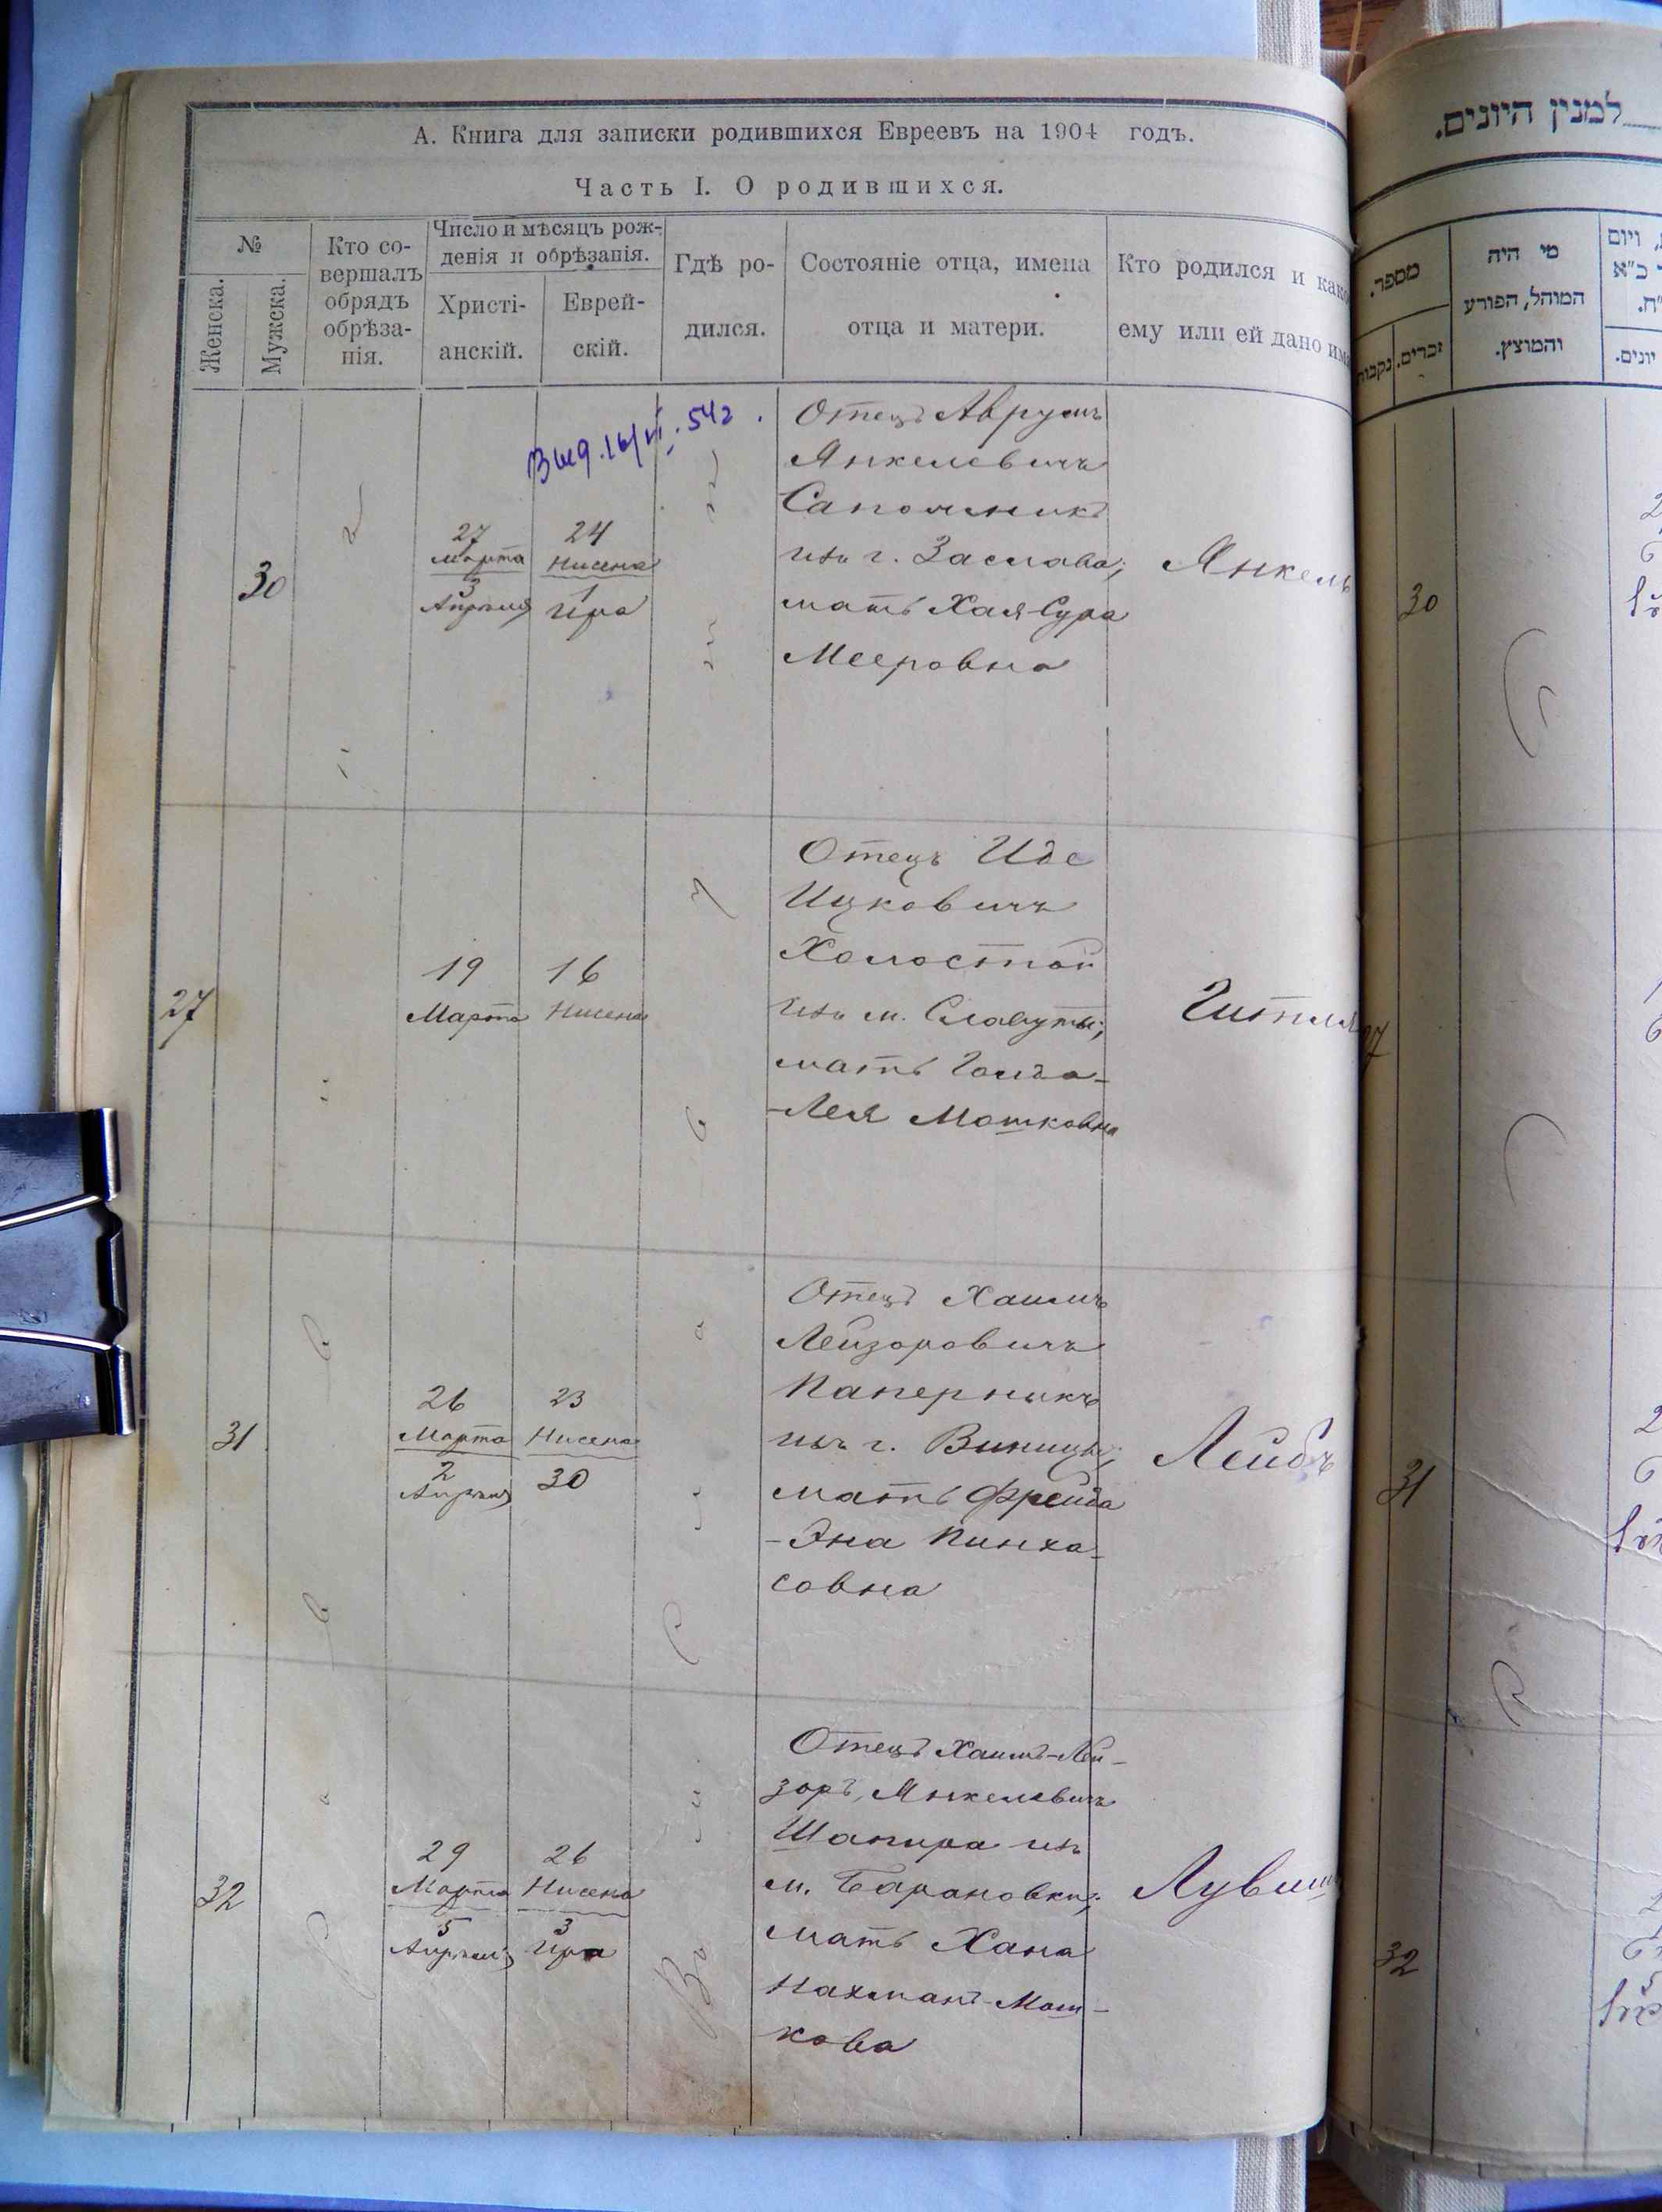 А. Книга для записки родившихся Евреевъ на 1904 годъ.
Часть I. О родившихся.
№
Женска.
Мужска.
Кто со-
вершалъ
обрядъ
обрѣза-
нія.
Число и мѣсяцъ рож-
денія и обрѣзанія.
Христі-
анскій.
Еврей-
скій.
Гдѣ ро-
дился.
Состояніе отца, имена
отца и матери.
Кто родился и како
ему или ей дано им
30
27
Марта
3
Апрѣля
24
Нисена
1
Ира
Отецъ Аврумъ
Янкелевичъ
Сапожникъ
изъ г. Заслава;
мать Хая-Сура
Мееровна
Янкель
27
19
Марта
16
Нисена
Отецъ Идс
Ицковичъ
Холостой
изъ м. Славуты;
мать Голда-
-Лея Мошковна
Гитля
31
26
Марта
2
Апрѣля
23
Нисена
30
Отецъ Хаимъ
Лейзоровичъ
Паперникъ
изъ г. Виницы;
мать Фрейда
-Эна Пинха-
совна
Лейбъ
32
29
Марта
5
Апрѣля
26
Нисена
3
Ира
Отецъ Хаимъ-Лей-
зоръ Янкелевичъ
Шапира изъ
м. Барановки;
мать Хана
Нахманъ-Мош-
кова
למנין היונים.
מספר.
זכרים.
מי היה
המוהל, הפורע
והמוצץ.
יונים.
30
27
31
32